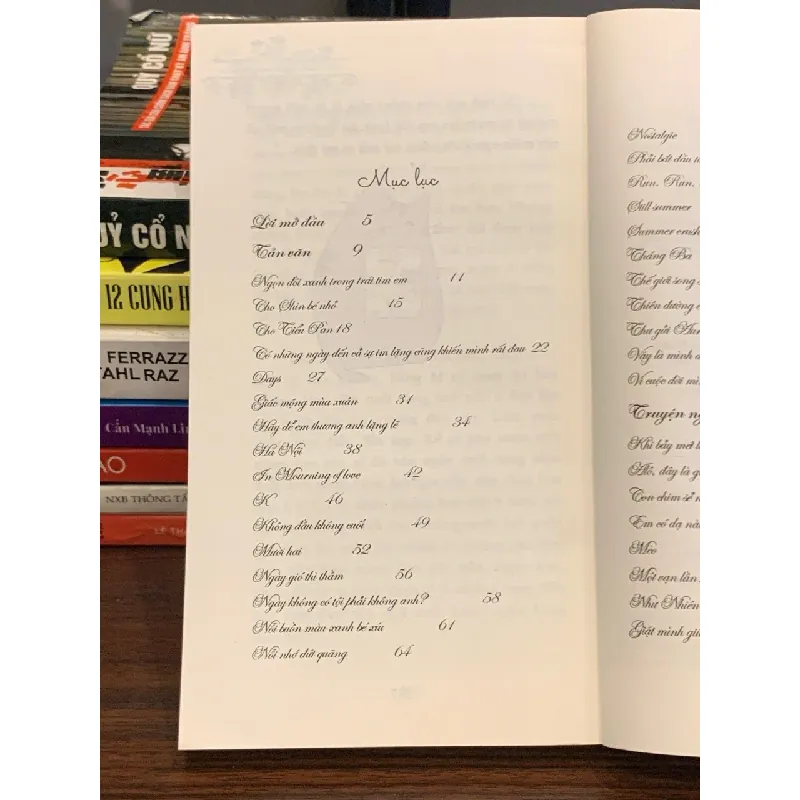 QUỶ CỔ NỮ
QUỶ CỔ N
12 CUNG H
FERRAZZ
TAHL RAZ
Cần Mạnh Li
AO
NXB THÔNG TẤ
LÊ THA
Mục lục
Lời mở đầu 5
Tản văn 9
Ngọn đồi xanh trong trái tim em 11
Cho Shin bé nhỏ 15
Cho Tiểu Pan 18
Có những ngày đến cả sự im lặng cũng khiến mình rất đau 22
Days 27
Giấc mộng mùa xuân 31
Hãy để em thương anh lặng lẽ 34
Hà Nội 38
In Mourning of love 42
K 46
Không đầu không cuối 49
Mười hai 52
Ngày gió thì thầm 56
Ngày không có tội phải không anh? 58
Nỗi buồn màu xanh bé xíu 61
Nỗi nhớ đứt quãng 64
Nostalgie
Phải bắt đầu t
Run. Run.
Still summer
Summer crush
Tháng Ba
Thế giới song s
Thiên đường c
Thư gửi
Vậy là mình
Vì cuộc đời mì
Truyện ng
Khi bảy
Alô, đây là g
Con chim sẻ n
Em có dạ nà
Mèo
Một vạn lần
Như Nhiên
Giật mình giữ